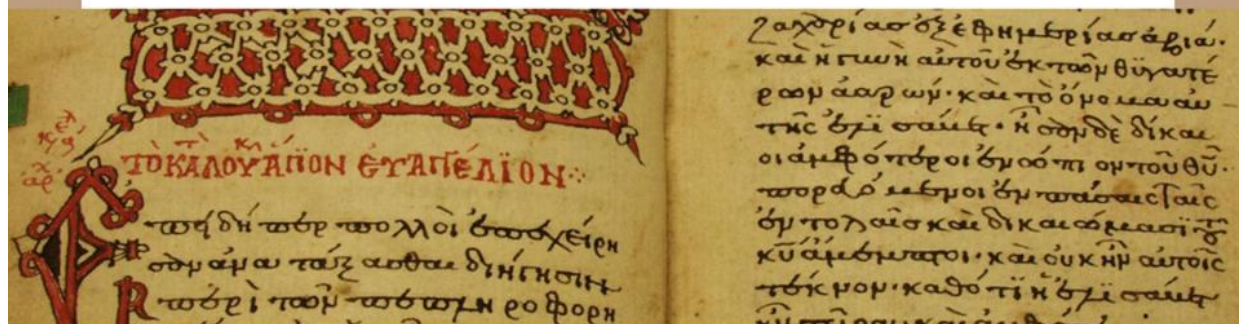 ΤΟ ΚΑΤ ΛΟΥΚ ΑΓΙΟΝ ΕΥΑΓΓΕΛΙΟΝ
Ἐπειδή περ πολλοὶ ἐπεχείρη
σαν ἀνατάξασθαι διήγησιν
περὶ τῶν πεπληροφορη
ζαχαρίας ἐξ ἐφημερίας ἀβιά·
καὶ ἡ γυνὴ αὐτοῦ ἐκ τῶν θυγατέ
ρων ἀαρών· καὶ τὸ ὄνομα αὐ
τῆς ἐλισάβετ· ἦσαν δὲ δίκαι
οι ἀμφότεροι ἐνώπιον τοῦ θ̅υ̅·
πορευόμενοι ἐν πάσαις ταῖς
ἐντολαῖς καὶ δικαιώμασι τοῦ
κ̅υ̅ ἄμεμπτοι· καὶ οὐκ ἦν αὐτοῖς
τέκνον· καθότι ἡ ἐλισάβετ